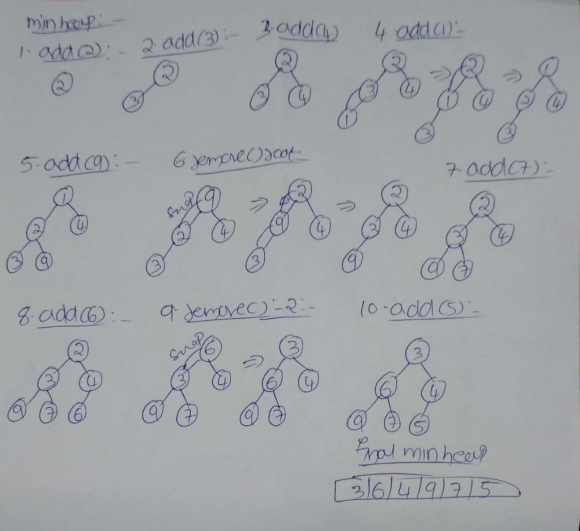 min heap:-
1. add(2):- 2. add(3):- 3. add(4) 4. add(1):-
2
2
3
2
3 4
2
3 4
1
⇒
2
1 4
3
⇒
1
2 4
3
5. add(9):- 6. remove() root:- 7. add(7):-
1
2 4
3 9
swap
9
2 4
3
⇒
2
9 4
3
⇒
2
3 4
9
2
3 4
9 7
8. add(6):- 9. remove():-2:- 10. add(5):-
2
3 4
9 7 6
swap
6
3 4
9 7
⇒
3
6 4
9 7
3
6 4
9 7 5
final min heap
3|6|4|9|7|5